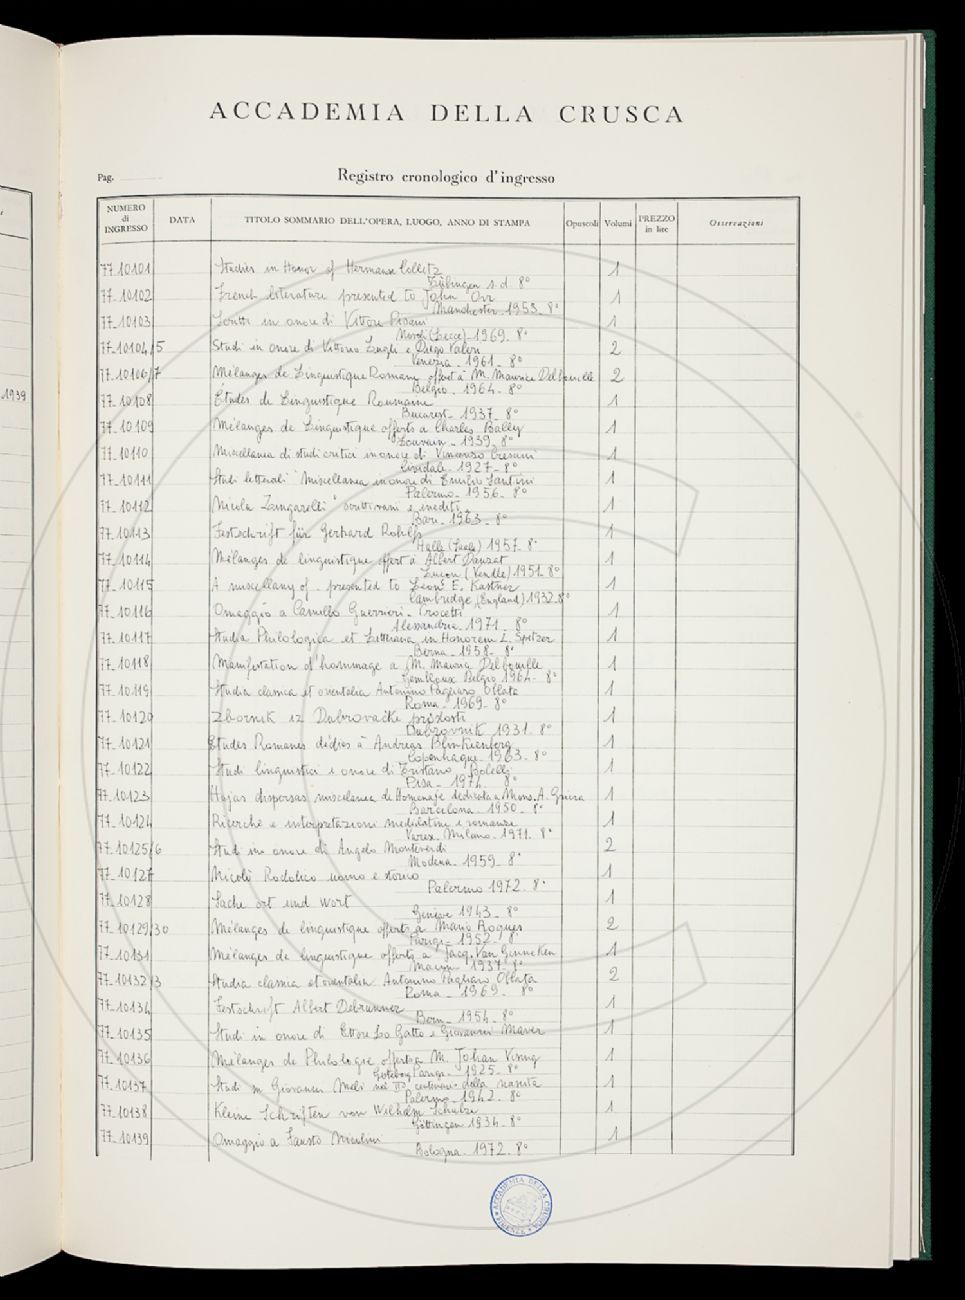 ACCADEMIA DELLA CRUSCA
Pag.
Registro cronologico d'ingresso
NUMERO di INGRESSO DATA TITOLO SOMMARIO DELL'OPERA, LUOGO, ANNO DI STAMPA Opuscoli Volumi PREZZO in lire Osservazioni
1939
77-10101 Studies in Honor of Hermann Collitz 1
s.d. 8°
77-10102 French literature presented to John Orr 1
Manchester 1953. 8°
77-10103 Scritti in onore di Vittore Pisani 1
(Lecce) - 1969. 8°
77-10104/5 Studi in onore di Vittorio Lugli e Diego Valeri 2
Venezia - 1961. 8°
77-10106/7 Mélanges de Linguistique Romane offert à M. Maurice Delbouille 2
Belgio - 1964. 8°
77-10108 Études de Linguistique Roumaine 1
Bucarest - 1937. 8°
77-10109 Mélanges de Linguistique offerts a Charles Bally 1
1939. 8°
77-10110 Miscellanea di studi critici in onore di Vincenzo Crescini 1
Cividale - 1927 - 8°
77-10111 Studi letterari Miscellanea in onore di Emilio Santini 1
Palermo - 1956. 8°
77-10112 Nicola Zingarelli scritti vari e inediti 1
Bari - 1963. 8°
77-10113 Festschrift für Gerhard Rohlfs 1
Halle (Saale) 1957. 8°
77-10114 Mélanges de linguistique offert à Albert Dauzat 1
1951. 8°
77-10115 A miscellany of - presented to Leon E. Kastner 1
Cambridge (England) 1932. 8°
77-10116 Omaggio a Camillo Guerrieri-Crocetti 1
Alessandria - 1971. 8°
77-10117 Studia Philologica et Litteraria in Honorem L. Spitzer 1
Berna - 1958. 8°
77-10118 Manifestation d'hommage a M. Maurice Delbouille 1
Gembloux Belgio 1964. 8°
77-10119 Studia classica et orientalia Antonino Pagliaro Oblata 1
Roma - 1969. 8°
77-10120 Zbornik iz Dubrovačke prošlosti 1
Dubrovnik 1931. 8°
77-10121 Etudes Romanes dédiés à Andreas Blinkenberg 1
Copenhague - 1963. 8°
77-10122 Studi linguistici i onore di Tristano Bolelli 1
Pisa - 1974. 8°
77-10123 Hojas dispersas miscelanea de Homenaje dedicata a Mons. A. Griera 1
Barcelona - 1950. 8°
77-10124 Ricerche e interpretazioni mediolatine e romanze 1
Varese Milano - 1971. 8°
77-10125/6 Studi in onore di Angelo Monteverdi 2
Modena - 1959. 8°
77-10127 Nicolò Rodolico uomo e storico 1
Palermo 1972. 8°
77-10128 Sache ort und wort 1
Genève 1943. 8°
77-10129/30 Mélanges de linguistique offerts a Mario Roques 2
Parigi - 1952. 8°
77-10131 Mélanges de linguistique offerts a Jacq. Van Ginneken 1
1937. 8°
77-10132/3 Studia classica et orientalia Antonino Pagliaro Oblata 2
Roma - 1969. 8°
77-10134 Festschrift Albert Debrunner 1
Bern - 1954. 8°
77-10135 Studi in onore di Ettore Lo Gatto e Giovanni Maver 1
77-10136 Mélanges de Philologie offerts a M. Johan Vising 1
Göteborg Parigi - 1925. 8°
77-10137 Studi su Giovanni Meli nel II° centenario della nascita 1
Palermo - 1942. 8°
77-10138 Kleine Schriften von Wilhelm Schulze 1
Göttingen 1934. 8°
77-10139 Omaggio a Fausto Nicolini 1
Bologna - 1972. 8°
ACCADEMIA DELLA CRUSCA FIRENZE